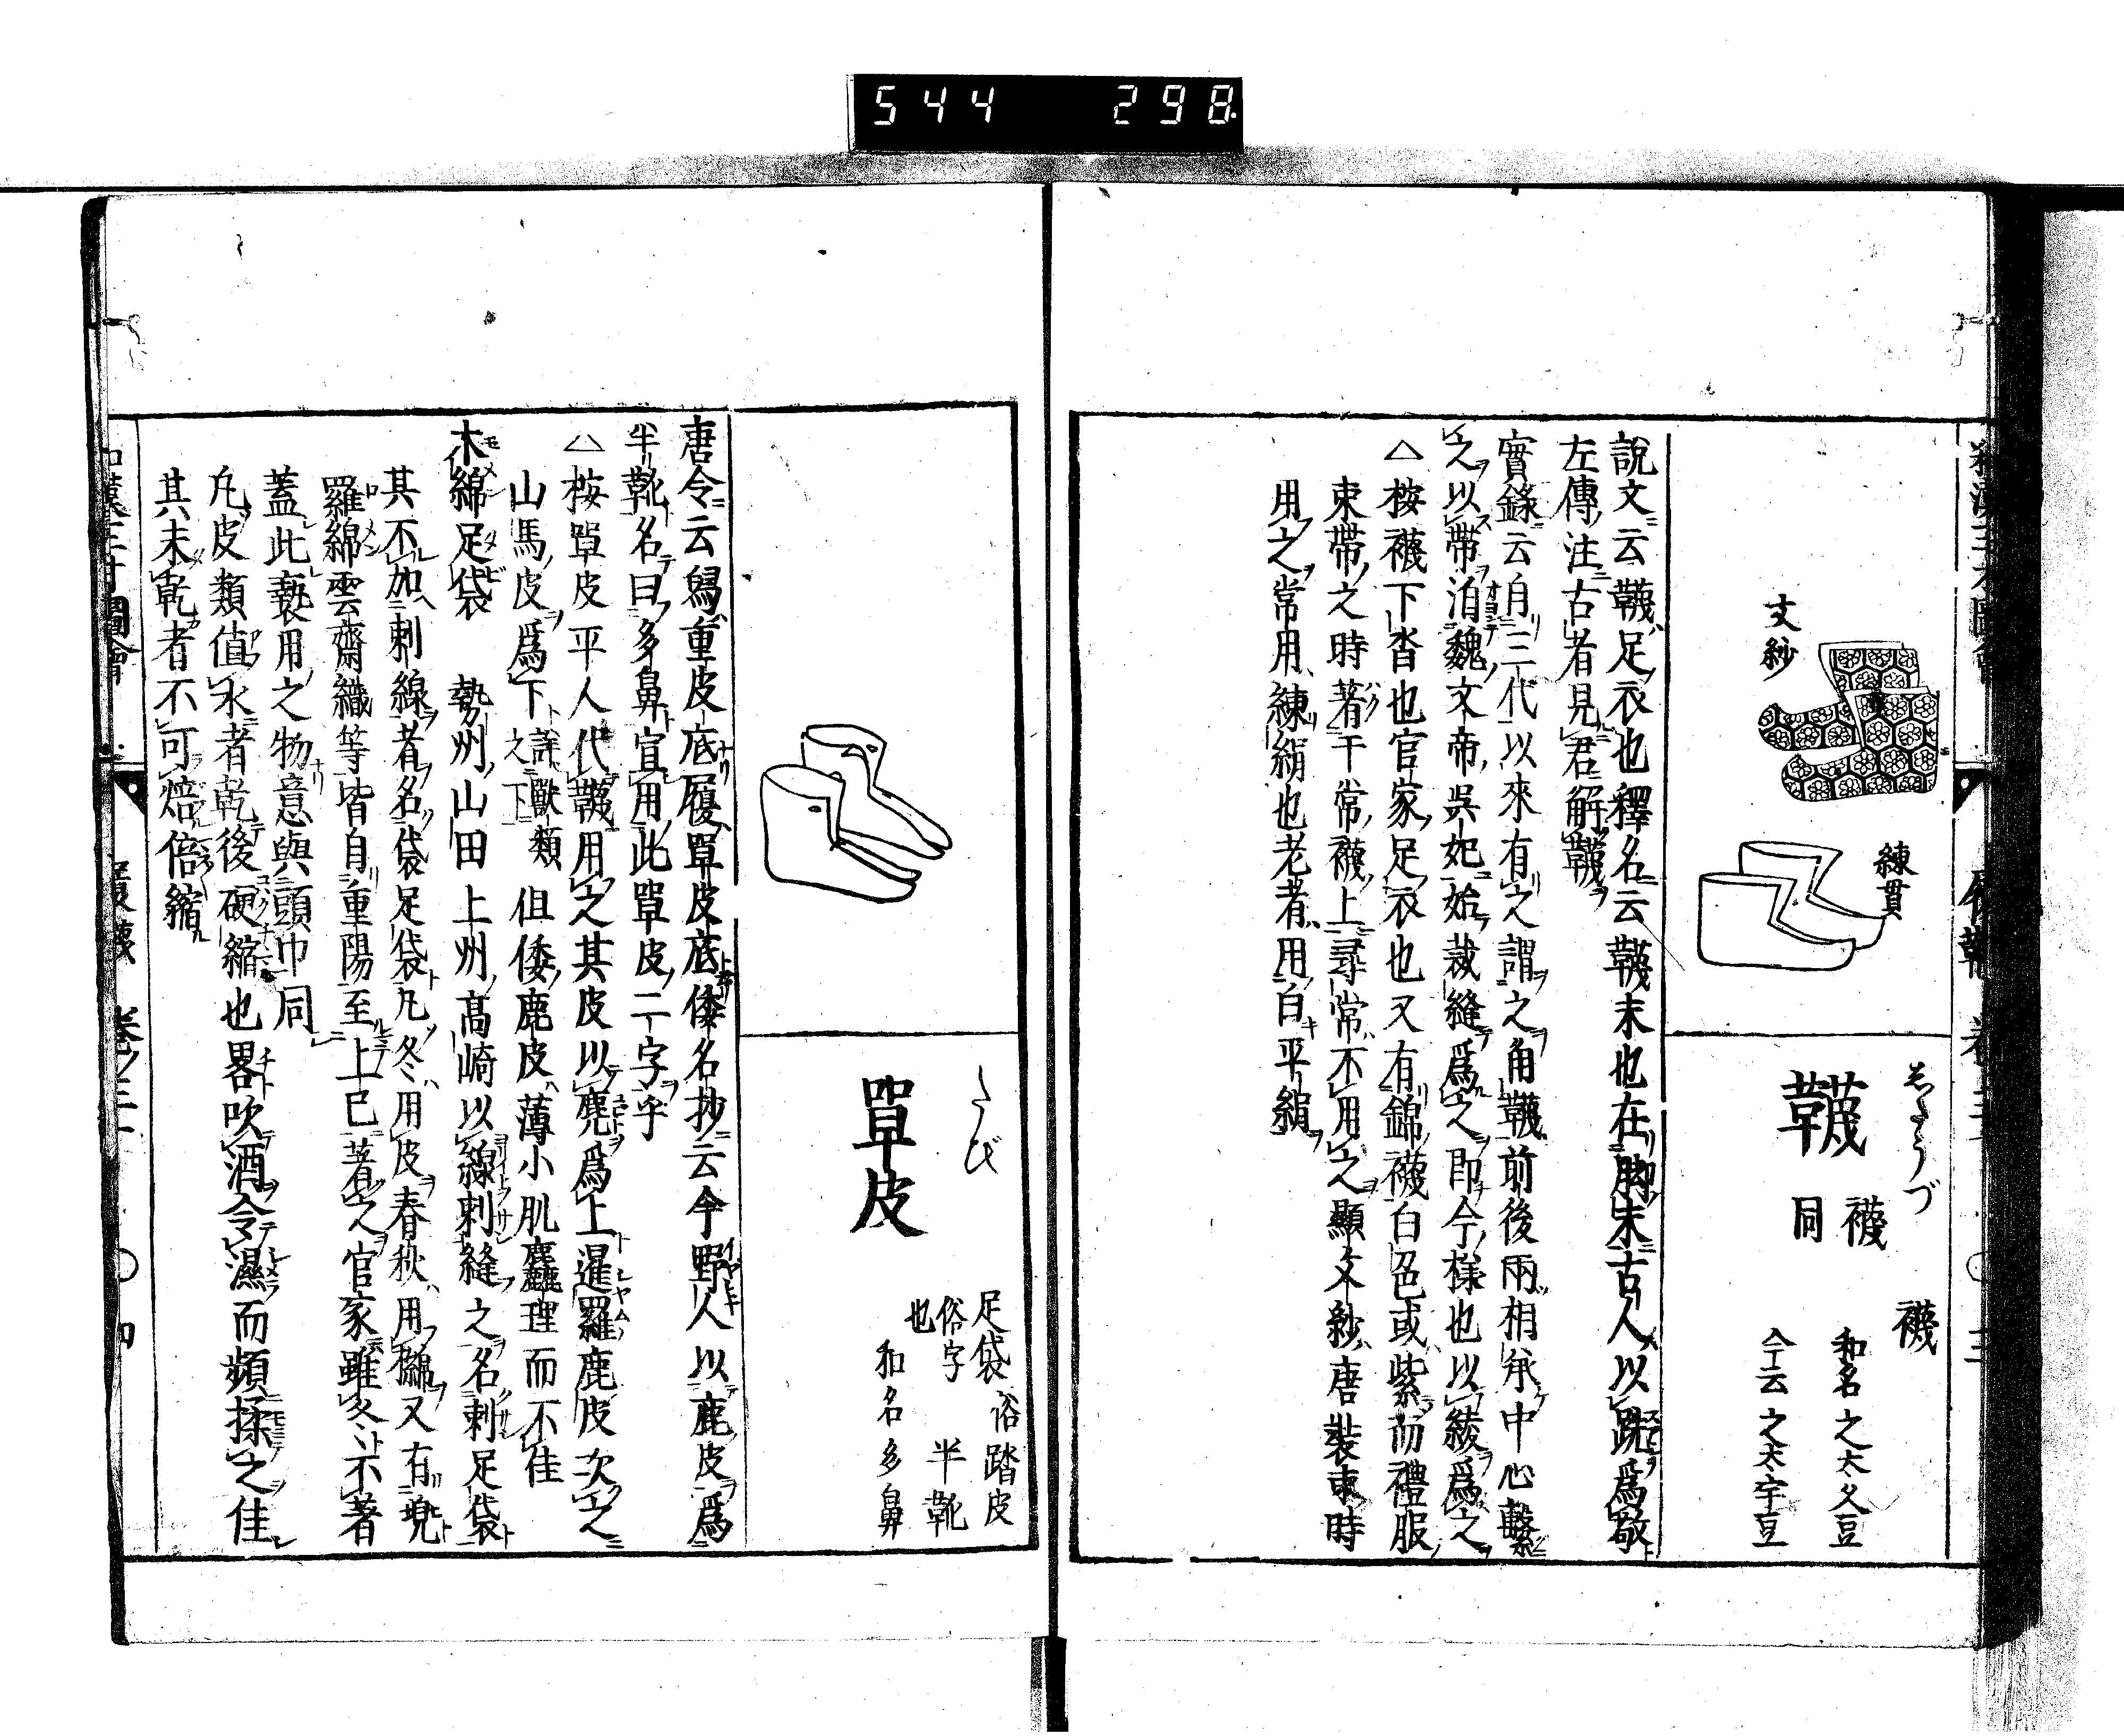 544 298
文紗
練貫
したうづ
韈
襪 同
襪
和名之太久豆
今云之太宇豆
說文云韈足衣也釋名云韈末也在脚末古人以跣爲敬
左傳注古者見君解韈
實錄云自三代以來有之謂之角韈前後兩相承中心繫
之以帶洎魏文帝吳妃始裁縫爲之即今樣也以綾爲之
△按襪下沓也官家足衣也又有錦襪白色或紫而禮服
束帶之時著干常襪上尋常不用之顯文紗唐裝束時
用之常用練絹也老者用白平絹
たび
單皮
足袋 俗字也
俗踏皮
半靴
和名多鼻
唐令云舄重皮底履單皮底倭名抄云今野人以鹿皮爲
半靴名曰多鼻宜用此單皮二字乎
△按單皮平人代韈用之其皮以麂爲上暹羅鹿皮次之
山馬皮爲下 許獸類之下 但倭鹿皮薄小肌麤理而不佳
木綿足袋 勢州山田上州髙崎以線刺縫之名刺足袋
其不加刺線者名袋足袋凡冬用皮春秋用綿又有兜
羅綿雲齋織等皆自重陽至上巳著之官家雖冬不著
蓋此褻用之物意與頭巾同
凡皮類値水者乾後硬縮也畧吹酒令濕而頻揉之佳
其未乾者不可焙倍縮
和漢三才圖會 履襪 卷ノ三十 〇四